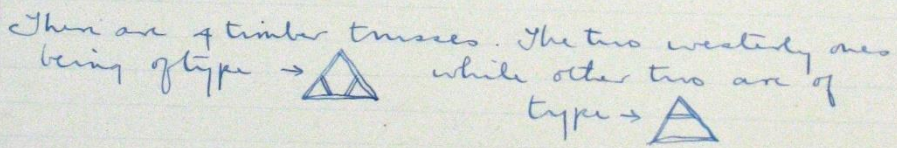 There are 4 timber trusses. The two westerly ones
being of type → while other two are of
type →